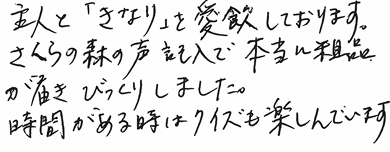 主人と「きなり」を愛飲しております。
さんらの森の声記入で本当に粗品
が届きびっくりしました。
時間がある時はクイズも楽しんでいます